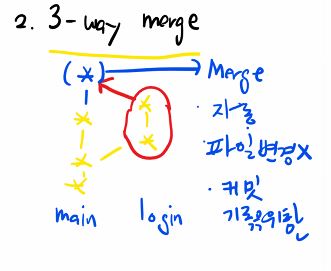 2. 3-way merge
(*) Merge
· 자동
파일변경X
· 커밋
기록을위함
main login